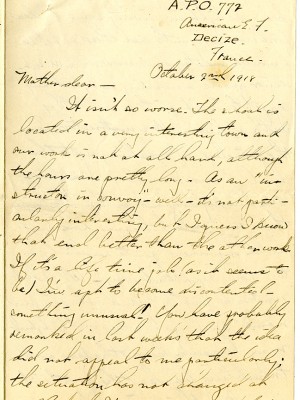 A.P.O. 772
American E F.
Decize.
France.
October 2nd 1918
Mother dear—
It isn't so worse. The school is
located in a very interesting town and
our work is not at all hard, although
the hours are pretty long. As an "in-
structor in convoy" — well — it's not parti-
cularly interesting, but I guess I know
that end better than the other work
If it's a life time job (as it seems to
be) I'm apt to become discontented —
something unusual! You have probably
remarked in last weeks that the idea
did not appeal to me particularly;
the situation has not changed at